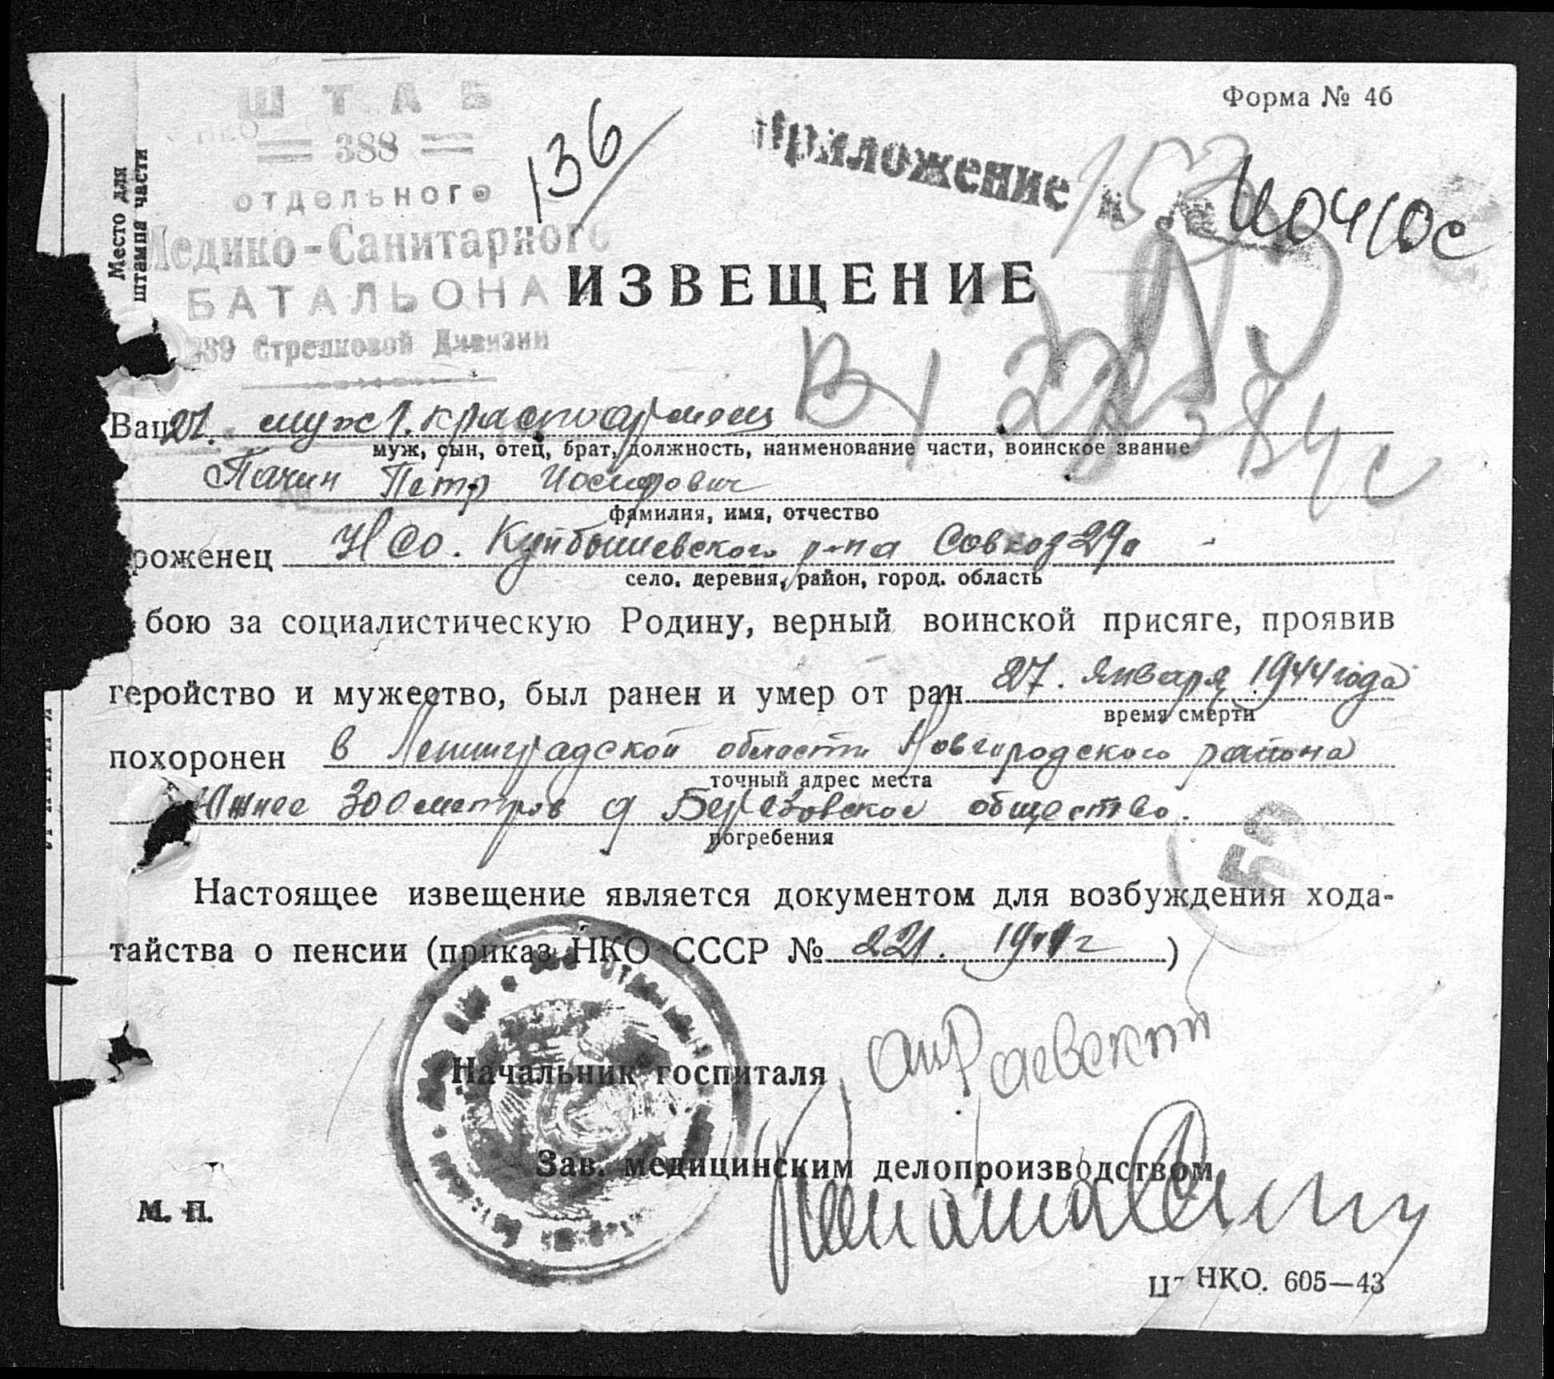 Форма № 46
Место для
штампа части
ШТАБ
388
отдельного
Медико-Санитарного
БАТАЛЬОНА
Стрелковой Дивизии
136
Приложение к №
ИЗВЕЩЕНИЕ
Ваш муж 1. красноармеец
муж, сын, отец, брат, должность, наименование части, воинское звание
Пачин Петр Иосифович
фамилия, имя, отчество
роженец НСО. Куйбышевского р-на Совхоз
село. деревня, район, город. область
бою за социалистическую Родину, верный воинской присяге, проявив
геройство и мужество, был ранен и умер от ран 27. Января 1944 года
время смерти
похоронен в Ленинградской области Новгородского района
точный адрес места
Южнее 300 метров д Березовское общество.
погребения
Настоящее извещение является документом для возбуждения хода-
тайства о пенсии (приказ НКО СССР № 221. 1941 г )
Начальник госпиталя
Зав. медицинским делопроизводством
М. П.
НКО. 605—43